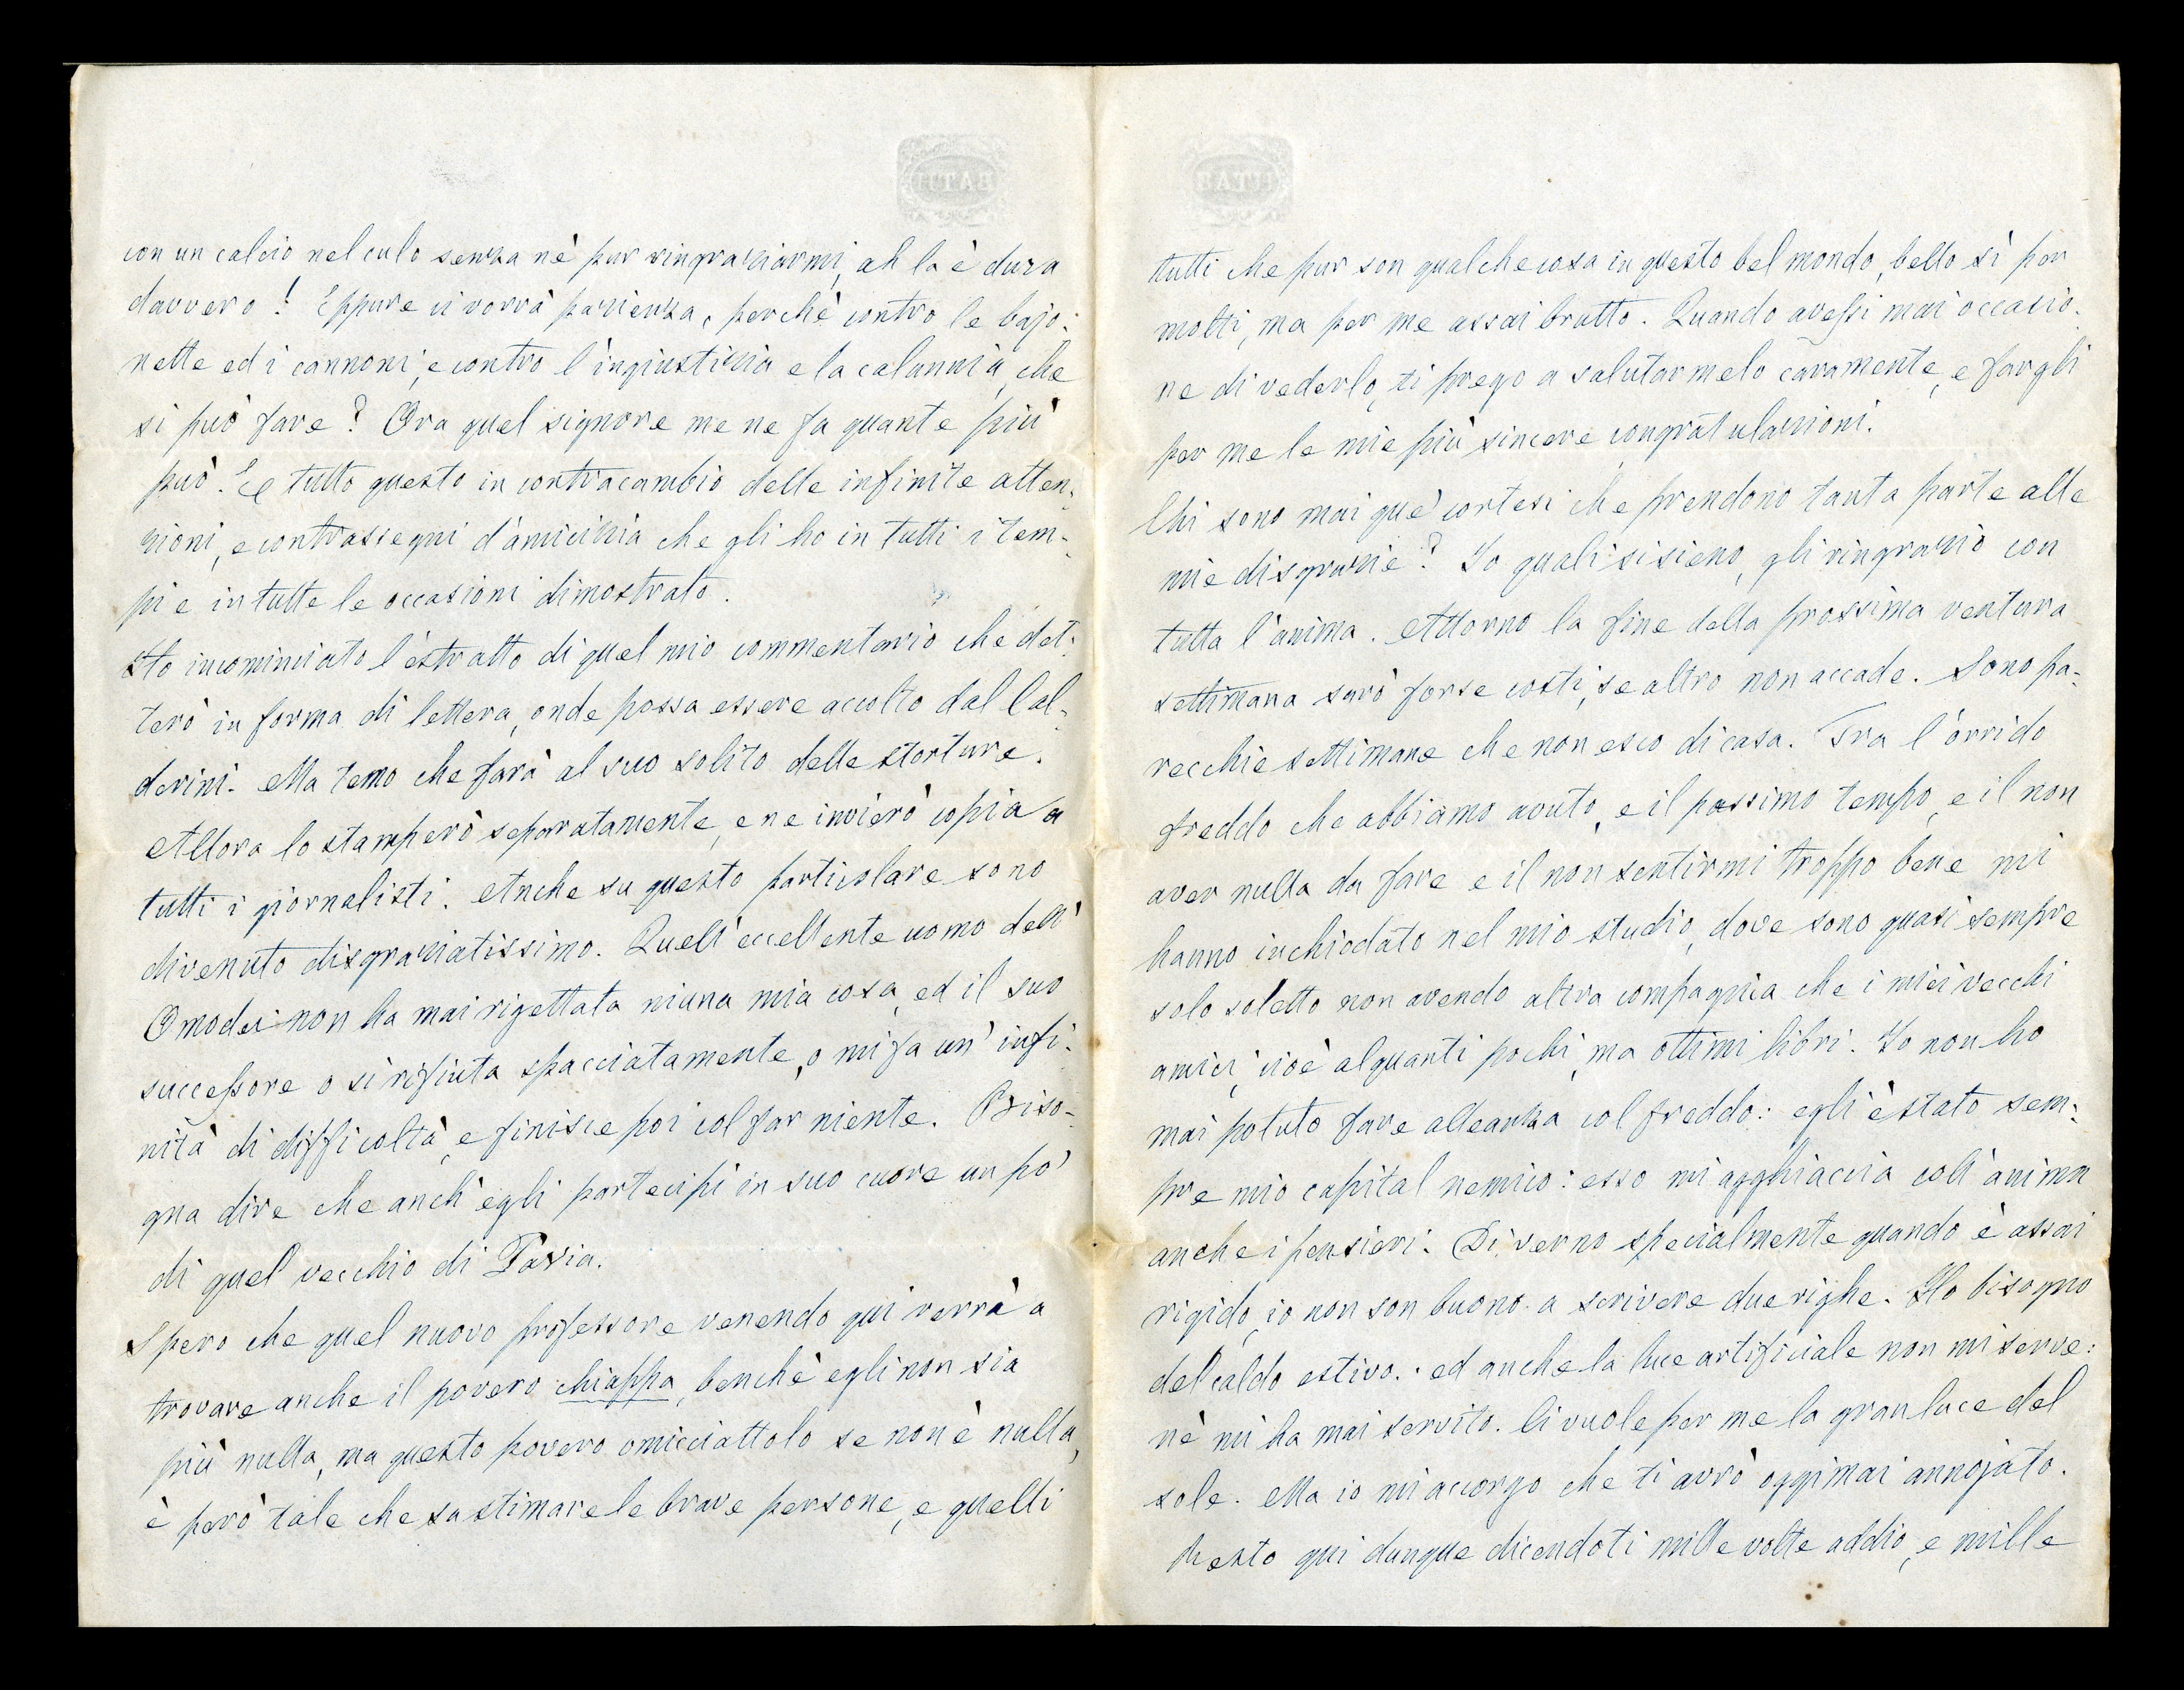 con un calcio nel culo senza nè pur ringraziarmi, ah la è dura
davvero! Eppure ci vorrà pazienza, perchè contro le bajo-
nette ed i cannoni, e contro l'ingiustizia e la calunnia, che
si può fare? Ora quel signore me ne fa quante più
può. E tutto questo in contracambio delle infinite atten-
zioni, e contrassegni d'amicizia che gli ho in tutti i tem-
pi e in tutte le occasioni dimostrato.
Ho incominciato l'estratto di quel mio commentario che det-
terò in forma di lettera, onde possa essere accolto dal Cal-
derini. Ma temo che farà al suo solito delle storture.
Allora lo stamperò separatamente, e ne invierò copia a
tutti i giornalisti. Anche su questo particolare sono
divenuto disgraziatissimo. Quell'eccellente uomo dell'
Omodei non ha mai rigettata niuna mia cosa, ed il suo
successore o si rifiuta spacciatamente, o mi fa un' infi-
nità di difficoltà, e finisce poi col far niente. Biso-
gna dire che anch'egli partecipi in suo cuore un po'
di quel vecchio di Pavia.
Spero che quel nuovo professore venendo qui verrà a
trovare anche il povero chiappa, benchè egli non sia
più nulla, ma questo povero omicciattolo se non è nulla,
è però tale che sa stimare le brave persone, e quelli
BATH
BATH
tutti che pur son qualche cosa in questo bel mondo, bello sì per
molti, ma per me assai brutto. Quando avessi mai occasio-
ne di vederlo, ti prego a salutarmelo caramente, e fargli
per me le mie più sincere congratulazioni.
Chi sono mai que' cortesi che prendono tanta parte alle
mie disgrazie? Io quali si sieno, gli ringrazio con
tutta l'anima. Attorno la fine della prossima ventura
settimana sarò forse costì, se altro non accade. Sono pa-
recchie settimane che non esco di casa. Fra l'orrido
freddo che abbiamo avuto, e il pessimo tempo, e il non
aver nulla da fare e il non sentirmi troppo bene mi
hanno inchiodato nel mio studio, dove sono quasi sempre
solo soletto non avendo altra compagnia che i miei vecchi
amici, cioè alquanti pochi, ma ottimi libri. Io non ho
mai potuto fare alleanza col freddo: egli è stato sem-
pre mio capital nemico: esso mi agghiaccia coll'anima
anche i pensieri. Di verno specialmente quando è assai
rigido, io non son buono a scrivere due righe. Ho bisogno
del caldo estivo: ed anche la luce artificiale non mi serve:
nè mi ha mai servito. Ci vuole per me la gran luce del
sole. Ma io mi accorgo che ti avrò oggimai annojato.
Resto qui dunque dicendoti mille volte addio, e mille